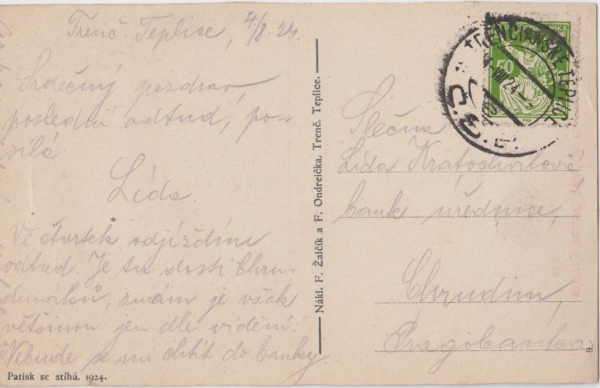 Trenč. Teplice, 4/8. 24.
Srdečný pozdrav
poslední odtud, po-
sílá
Lída.
Ve čtvrtek odjíždíme
odtud. Je tu dosti Chru-
dimáků, znám je však
většinou jen dle vidění.
Nebude se mi chtít do banky.
Patisk se stíhá. 1924.
Nákl. F. Žalčík a F. Ondreička, Trenč. Teplice.
50
TRENČIANSKE TEPLICE
VIII 24
Č.S.
Slečna
Lída Kratochvílová
bank. úřednice,
Chrudim,
Pragobanka
9.